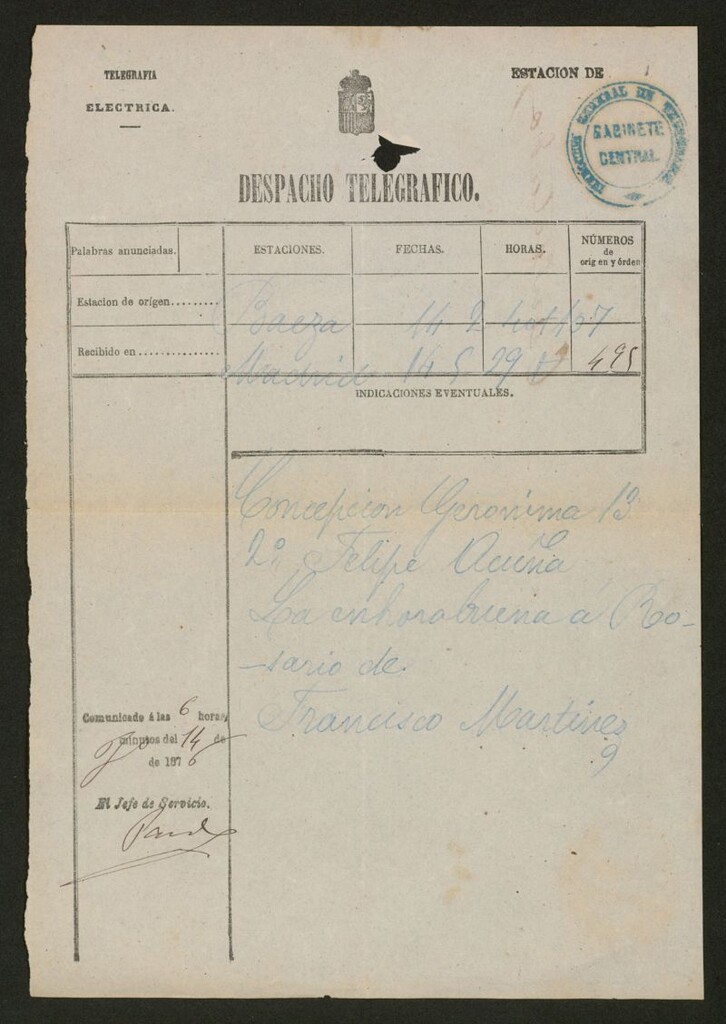 TELEGRAFIA
ELECTRICA.
ESTACION DE
GABINETE
CENTRAL
DESPACHO TELEGRAFICO.
Palabras anunciadas.
ESTACIONES.
FECHAS.
HORAS.
NÚMEROS
de
origen y órden
Estacion de orígen.........
Baeza 14 2 107
Recibido en...............
Madrid 14 5 29 495
INDICACIONES EVENTUALES.
Concepcion Geronima 13
2º Felipe Acuña
La enhorabuena á Ro-
-sario de
Francisco Martinez
Comunicado á las 6 horas
minutos del 14 de
de 1876
El Jefe de Servicio.